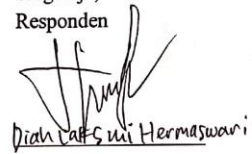 Responden
Diah Laksmi Hermaswari